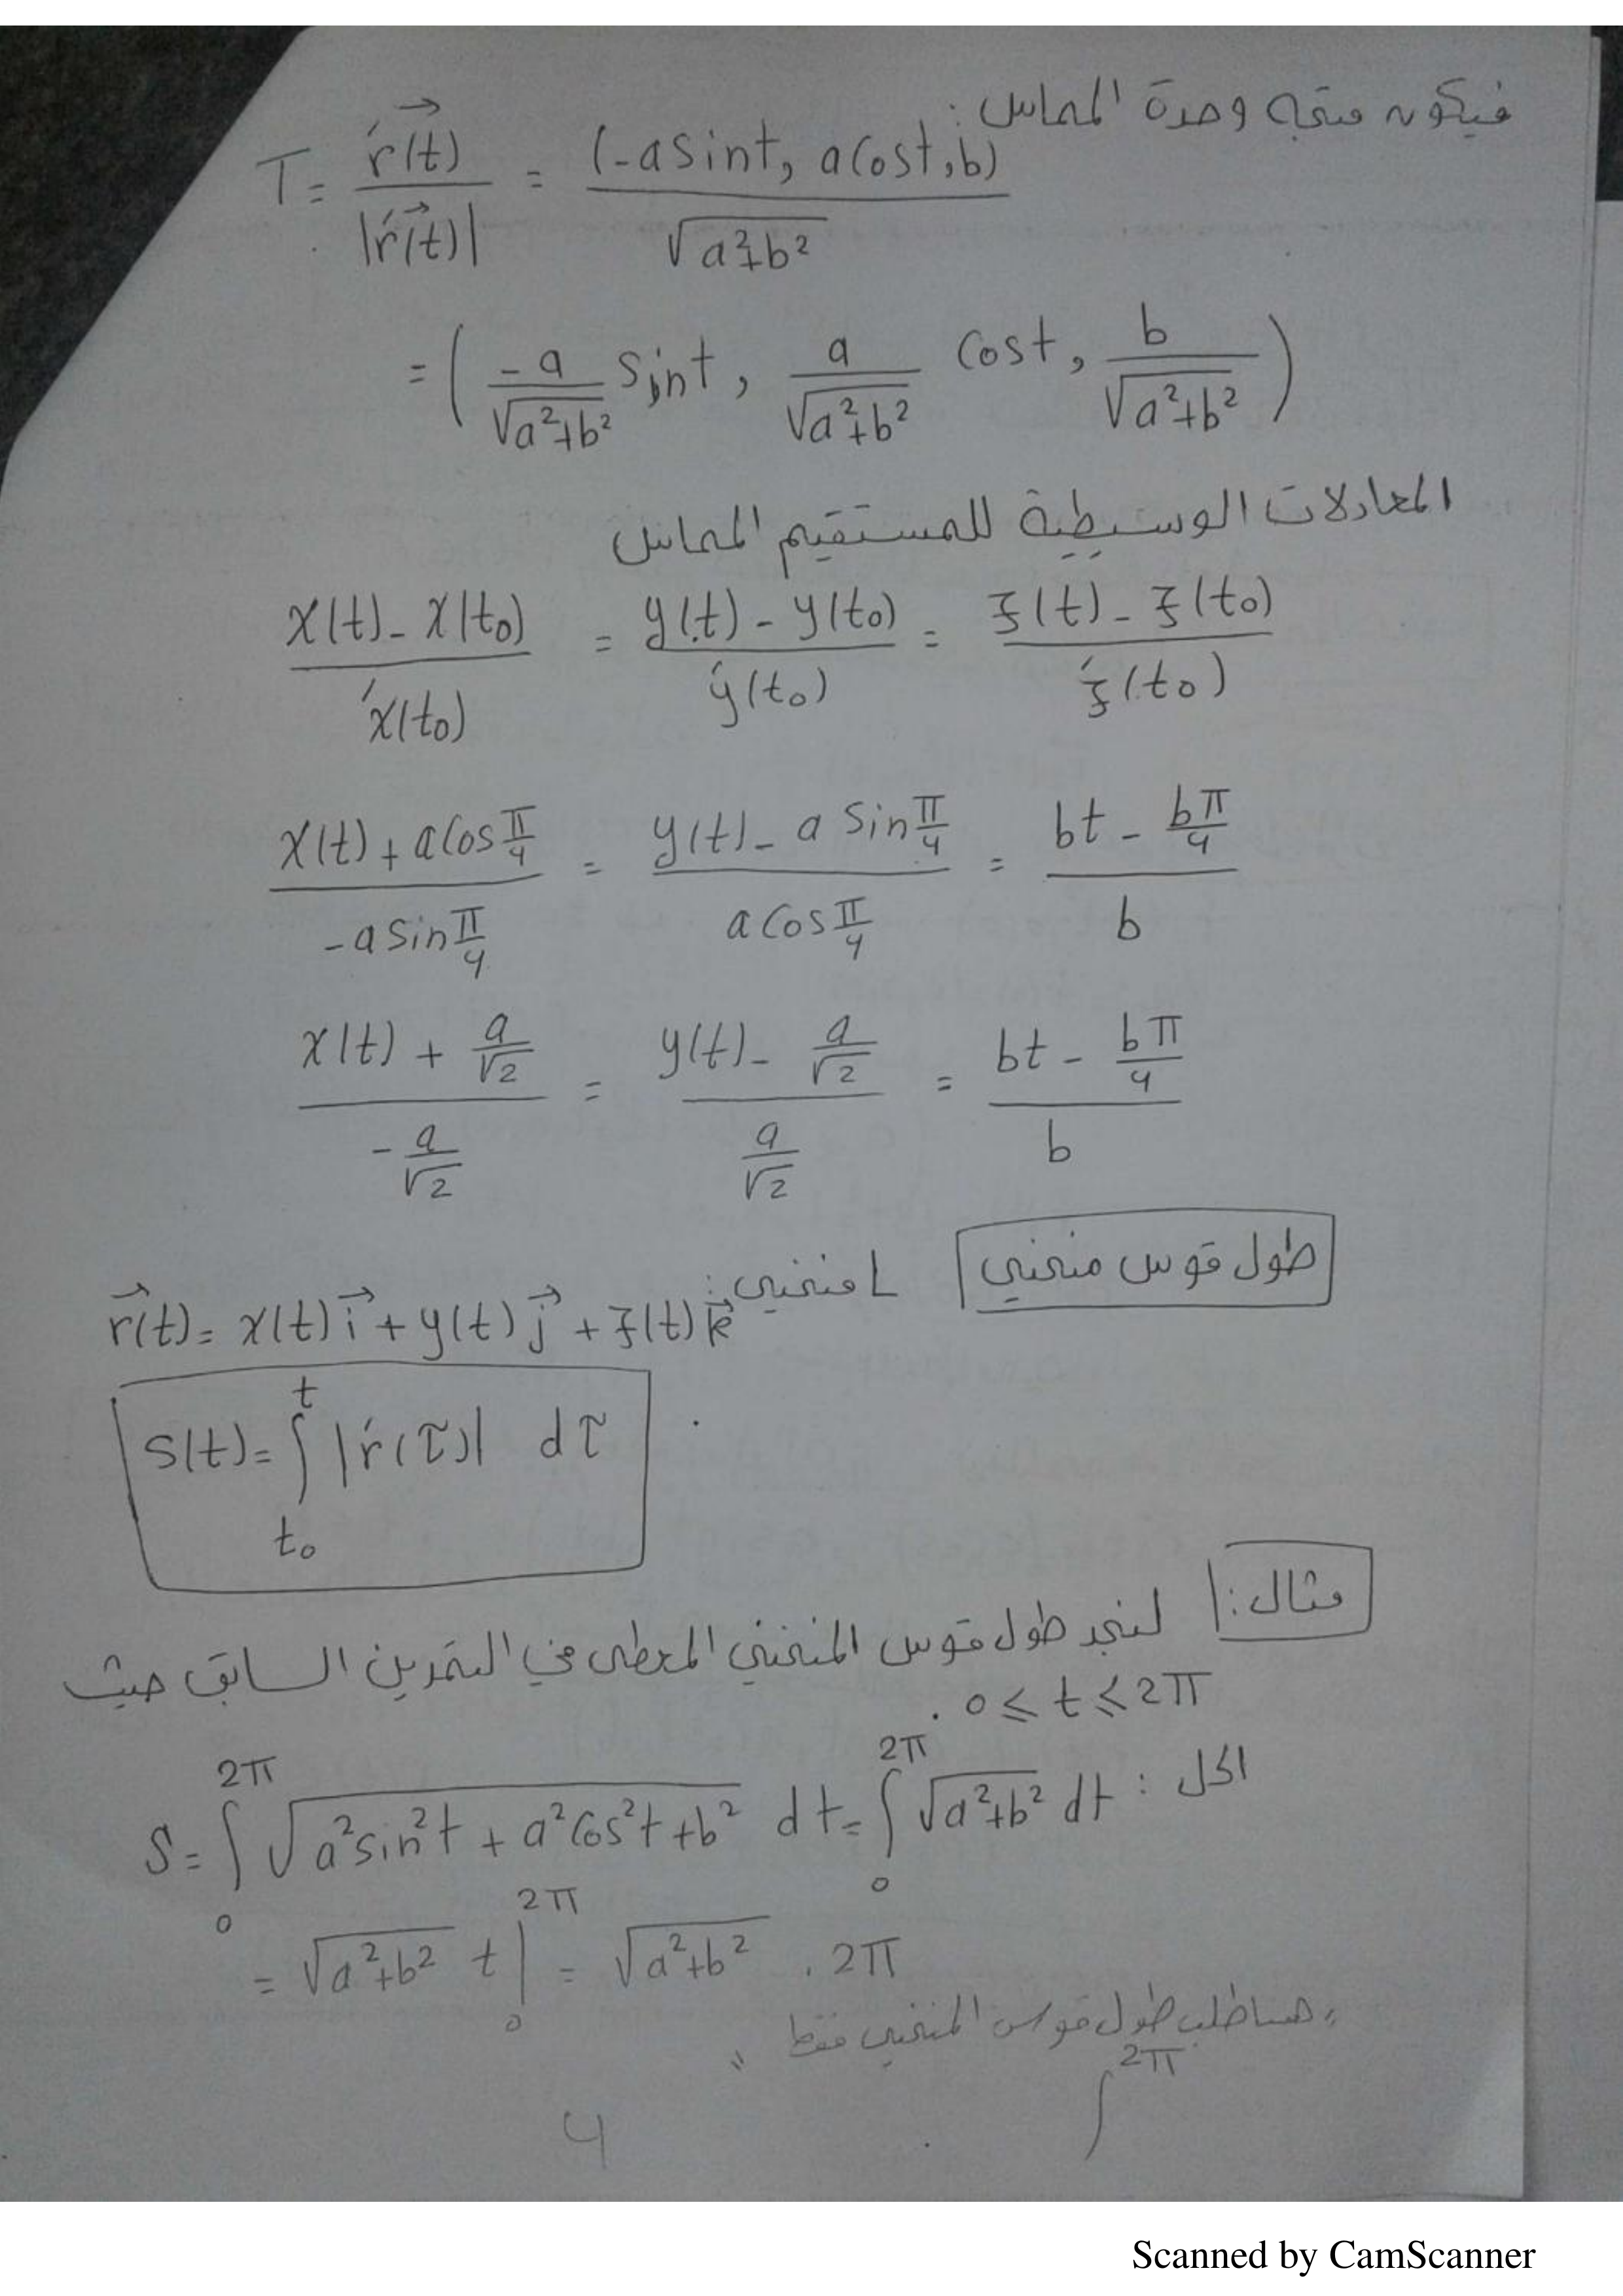 فيكون متجه وحدة المماس:
T = r'(t) / |r'(t)| = (-a sint, a cost, b) / √(a²+b²)
= ( -a/√(a²+b²) sint, a/√(a²+b²) cost, b/√(a²+b²) )
المعادلات الوسيطية للمستقيم المماس
(x(t) - x(t₀)) / x'(t₀) = (y(t) - y(t₀)) / y'(t₀) = (z(t) - z(t₀)) / z'(t₀)
(x(t) + a cos π/4) / (-a sin π/4) = (y(t) - a sin π/4) / (a cos π/4) = (bt - bπ/4) / b
(x(t) + a/√2) / (-a/√2) = (y(t) - a/√2) / (a/√2) = (bt - bπ/4) / b
طول قوس منحني L منحني:
r(t) = x(t) i + y(t) j + z(t) k
S(t) = ∫_{t₀}^{t} |r'(τ)| dτ
مثال: لنجد طول قوس المنحني المعطى في التمرين السابق حيث
0 ⩽ t ⩽ 2π .
الحل : S = ∫_{0}^{2π} √(a² sin²t + a² cos²t + b²) dt = ∫_{0}^{2π} √(a²+b²) dt
= √(a²+b²) t |_{0}^{2π} = √(a²+b²) . 2π
"هنا طلب طول قوس المنحني فقط"
∫^{2π}
4
Scanned by CamScanner